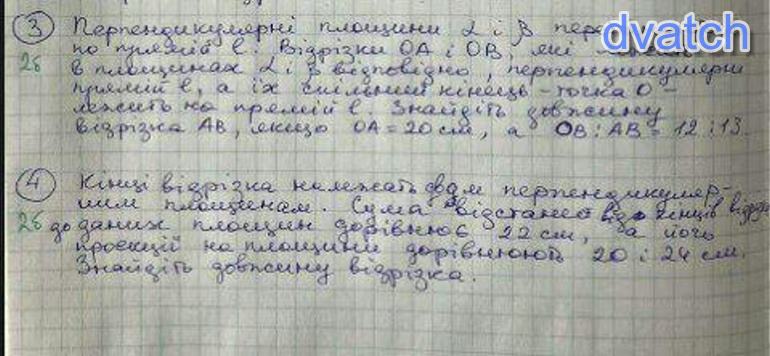 dvatch
3 Перпендикулярні площини α і β
по прямій ℓ. Відрізки OA і OB, які
2б в площинах α і β відповідно, перпендикулярні
прямій ℓ, а їх спільний кінець - точка O -
лежить на прямій ℓ. Знайдіть довжину
відрізка AB, якщо OA = 20 см, а OB : AB = 12 : 13.
4 Кінці відрізка належать двом перпендикуляр-
ним площинам. Сума відстаней від кінців
2б до даних площин дорівнює 22 см, а його
проекцій на площини дорівнюють 20 і 24 см.
Знайдіть довжину відрізка.